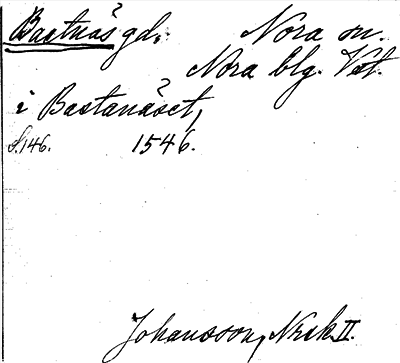 Bastnäs gd. Nora sn.
Nora blg. Vst.
i Bastanäset,
S. 146. 1546.
Johansson, Nrsk II.